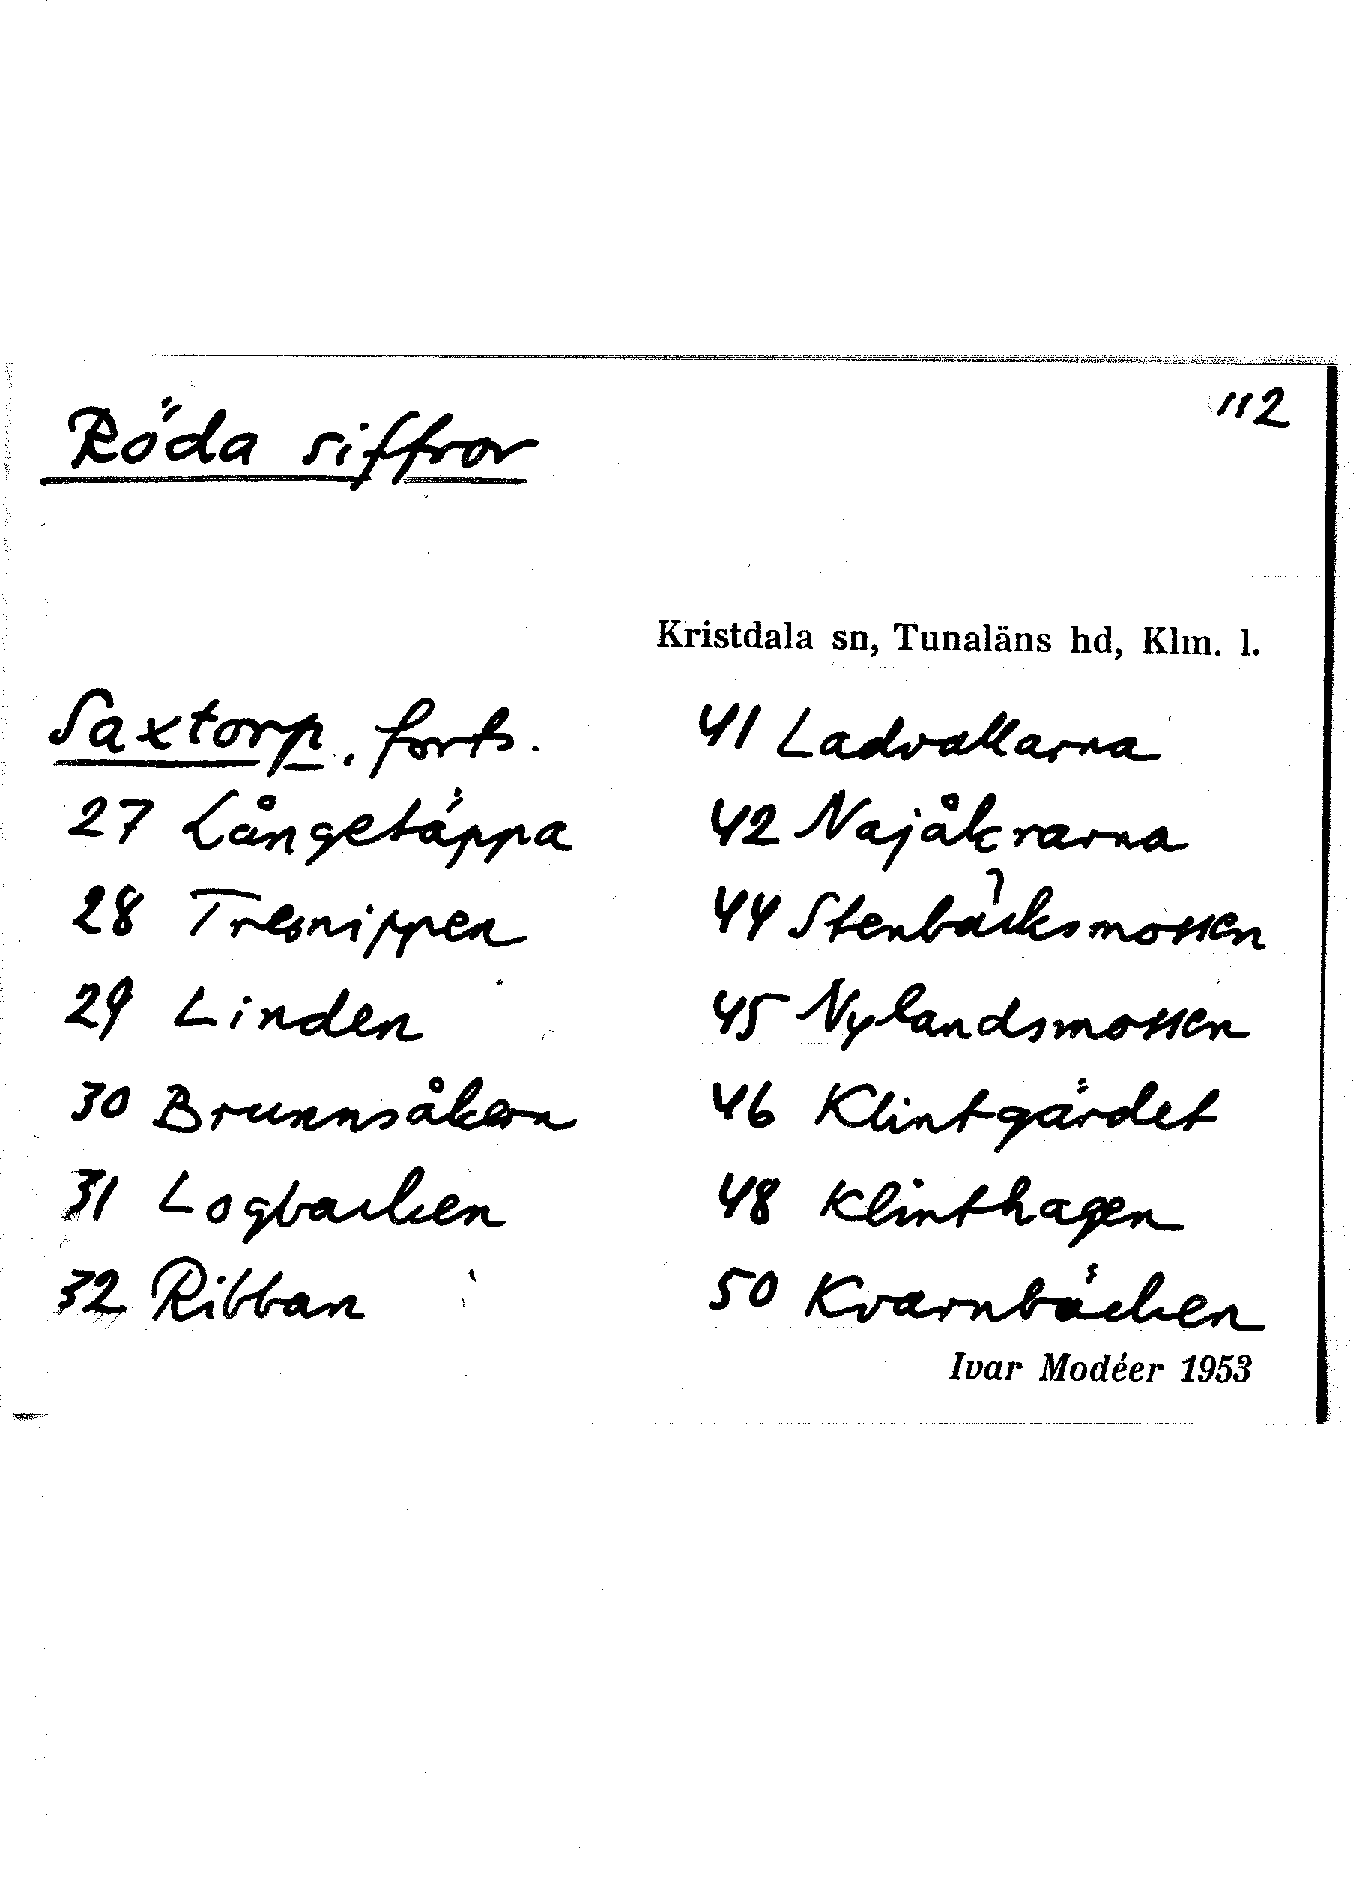 Röda siffror
112
Kristdala sn, Tunaläns hd, Klm. l.
Saxtorp, forts.
27 Långetäppa
28 Tresnippen
29 Linden
30 Brunnsåkern
31 Logbacken
32 Ribban
41 Ladvallarna
42 Najåkrarna
44 Stenbäcksmossen
45 Nylandsmossen
46 Klintgärdet
48 Klinthagen
50 Kvarnbäcken
Ivar Modéer 1953